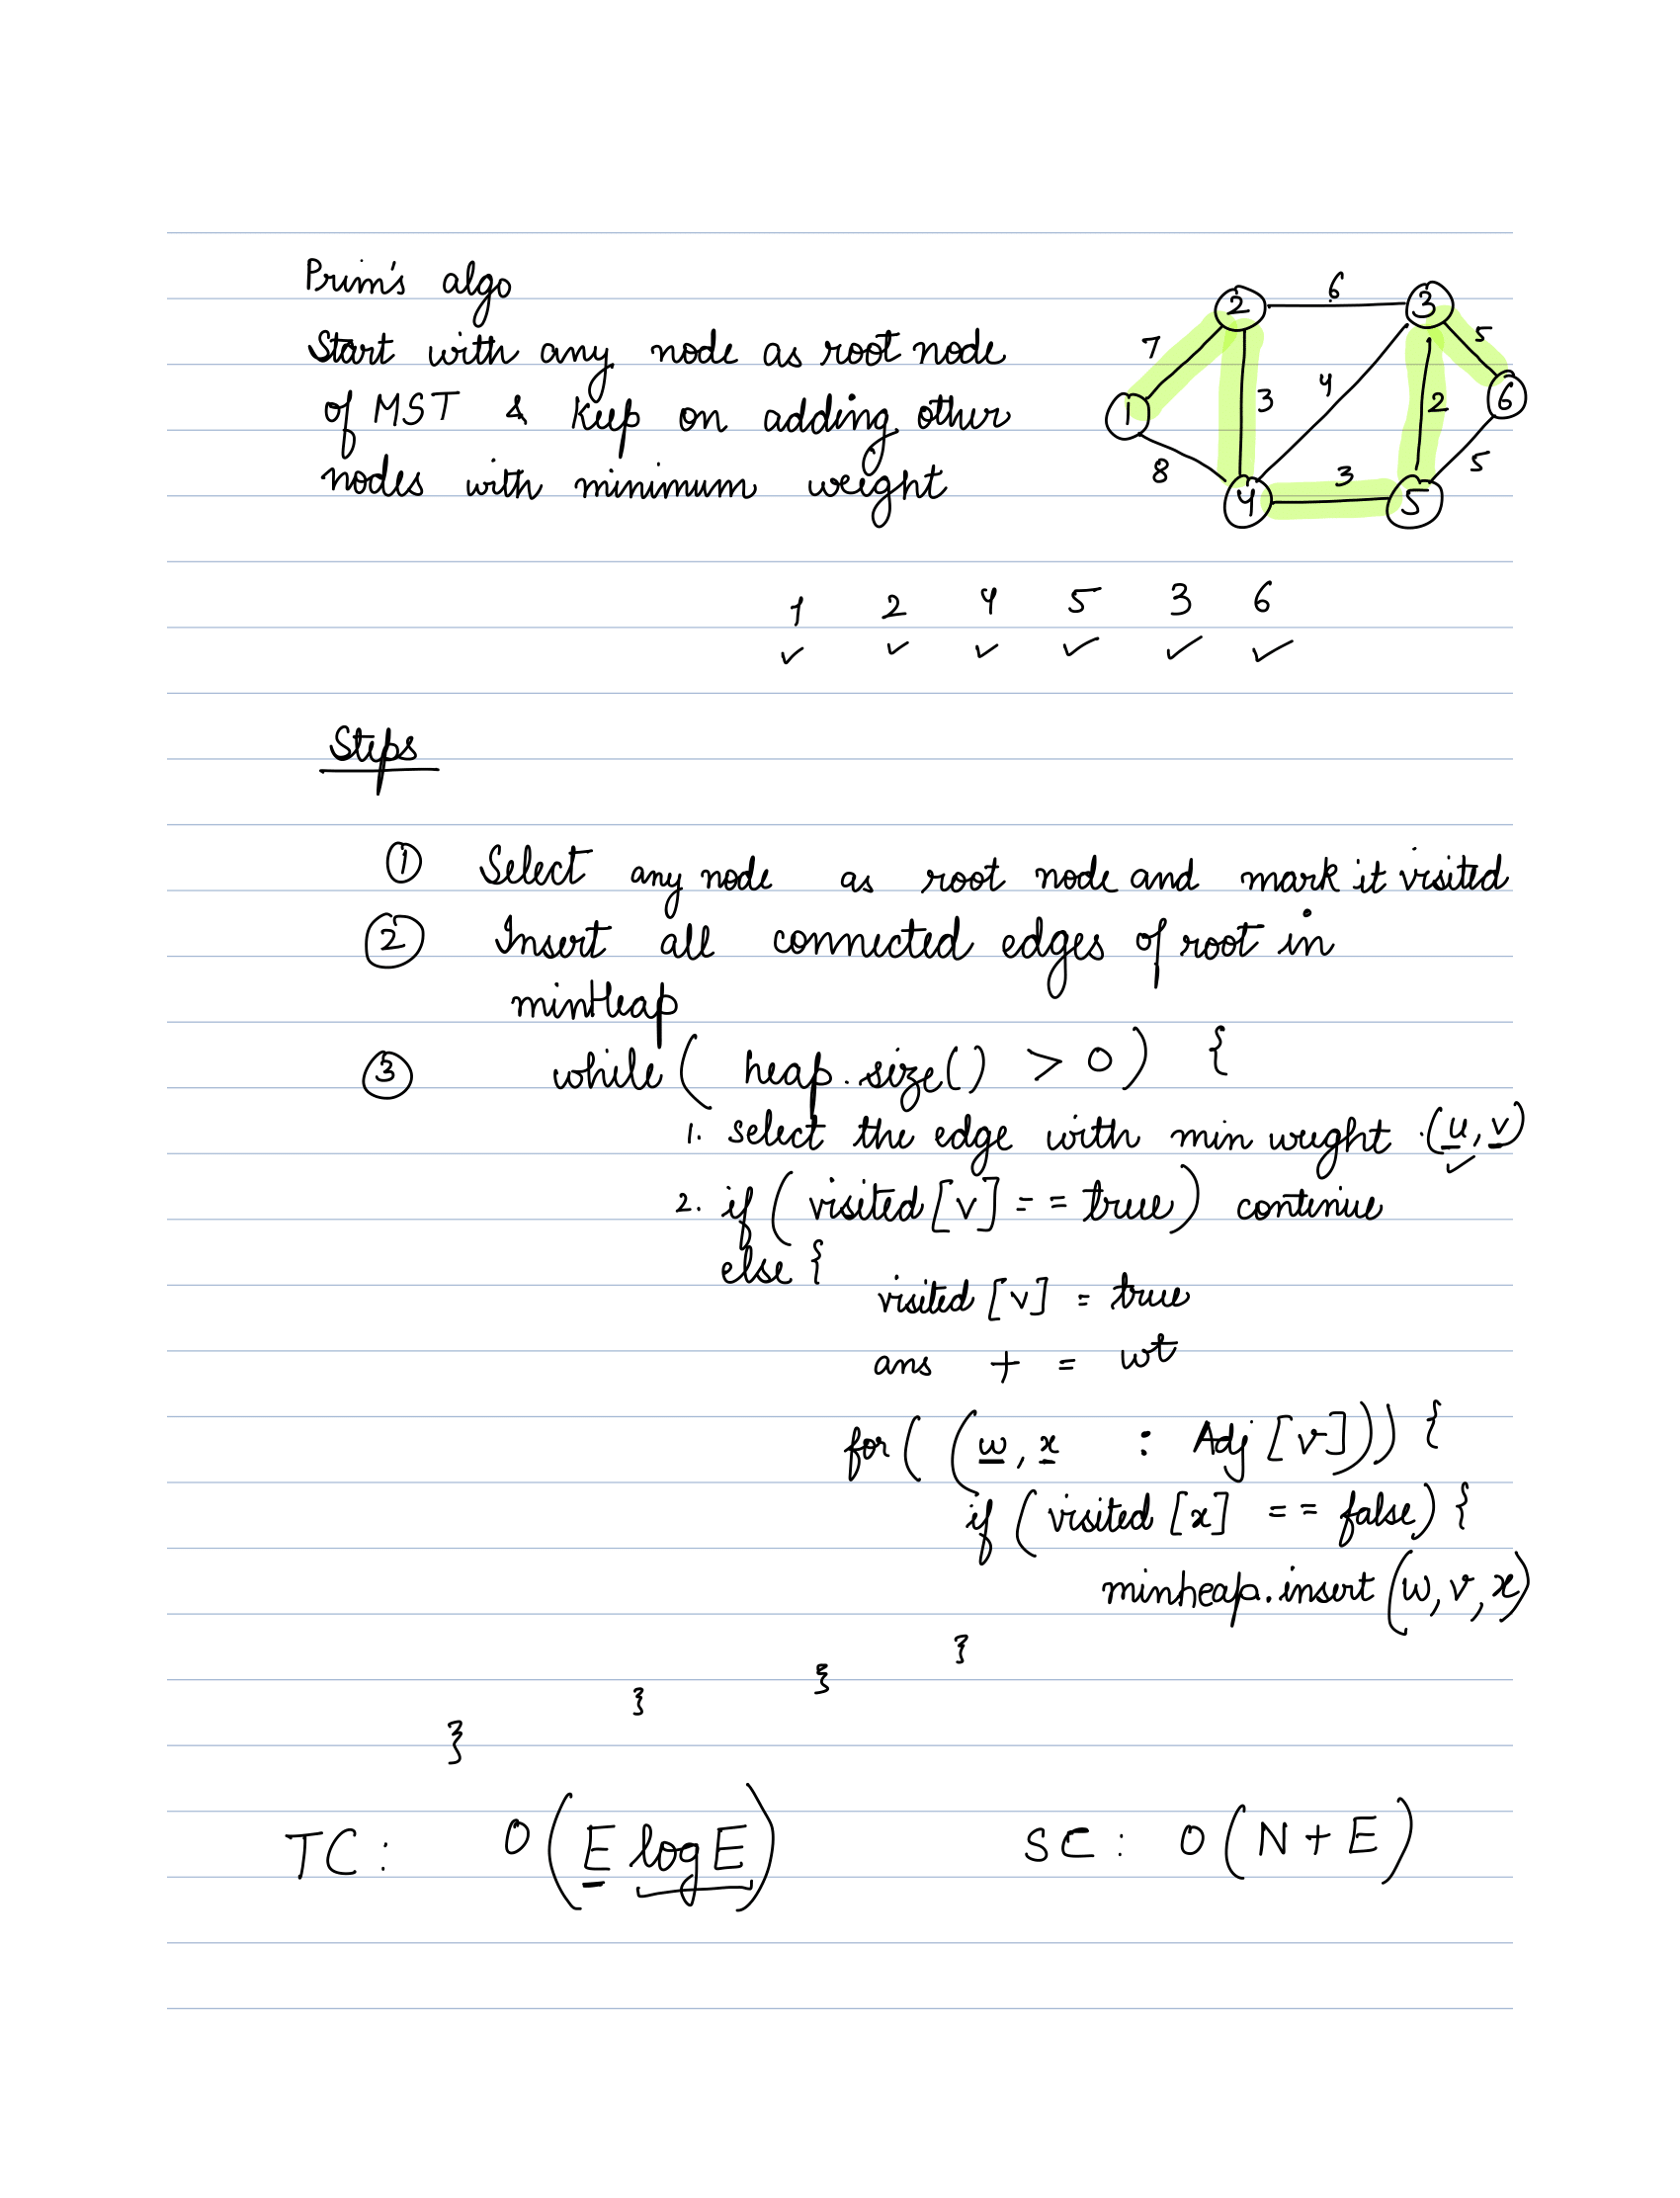 Prim's algo
Start with any node as root node
of MST & keep on adding other
nodes with minimum weight
2 6 3
7 5
3 4 2 6
1
8 3 5
4 5
1 2 4 5 3 6
Steps
1 Select any node as root node and mark it visited
2 Insert all connected edges of root in
minHeap
3 while ( heap.size() > 0 ) {
1. select the edge with min weight .(u,v)
2. if ( visited [v] == true) continue
else {
visited [v] = true
ans += wt
for ( (w, x : Adj [v])) {
if ( visited [x] == false) {
minheap.insert (w,v,x)
}
}
}
}
TC: O(E log E) SC: O(N+E)